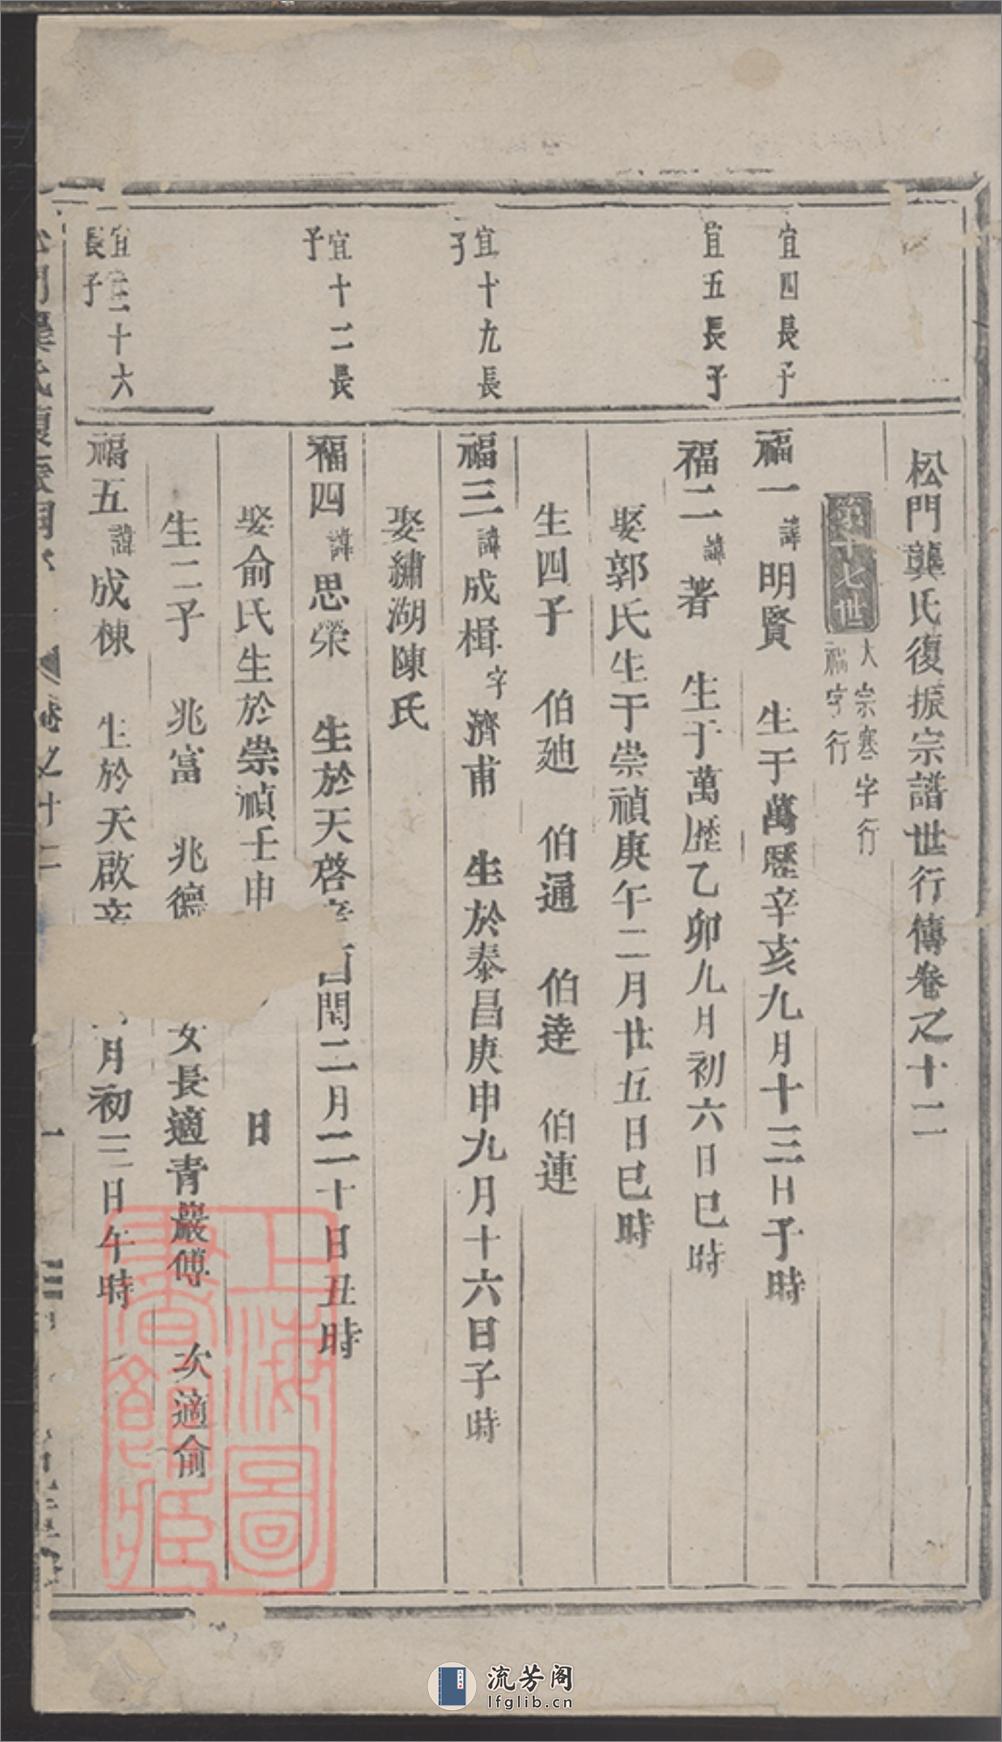 松門龔氏復振宗譜世行傳卷之十二
第十七世 大宗寒字行
福字行
宜四長子
福一 諱明賢 生于萬曆辛亥九月十三日子時
宜五長子
福二 諱著 生于萬歷乙卯九月初六日巳時
娶郭氏生于崇禎庚午二月廿五日巳時
生四子 伯廸 伯通 伯達 伯連
宜十九長
子
福三 諱成楫 字濟甫 生於泰昌庚申九月十六日子時
娶繡湖陳氏
宜十二長
子
福四 諱思榮 生於天啓辛酉閏二月二十日丑時
娶俞氏生於崇禎壬申 日
生二子 兆富 兆德 女長適青巖傅 次適俞
宜三十六
長子
福五 諱成棟 生於天啟辛 月初三日午時
松門龔氏復振宗 卷之十二 一
上海圖
書館藏
流芳阁
lfglib.cn